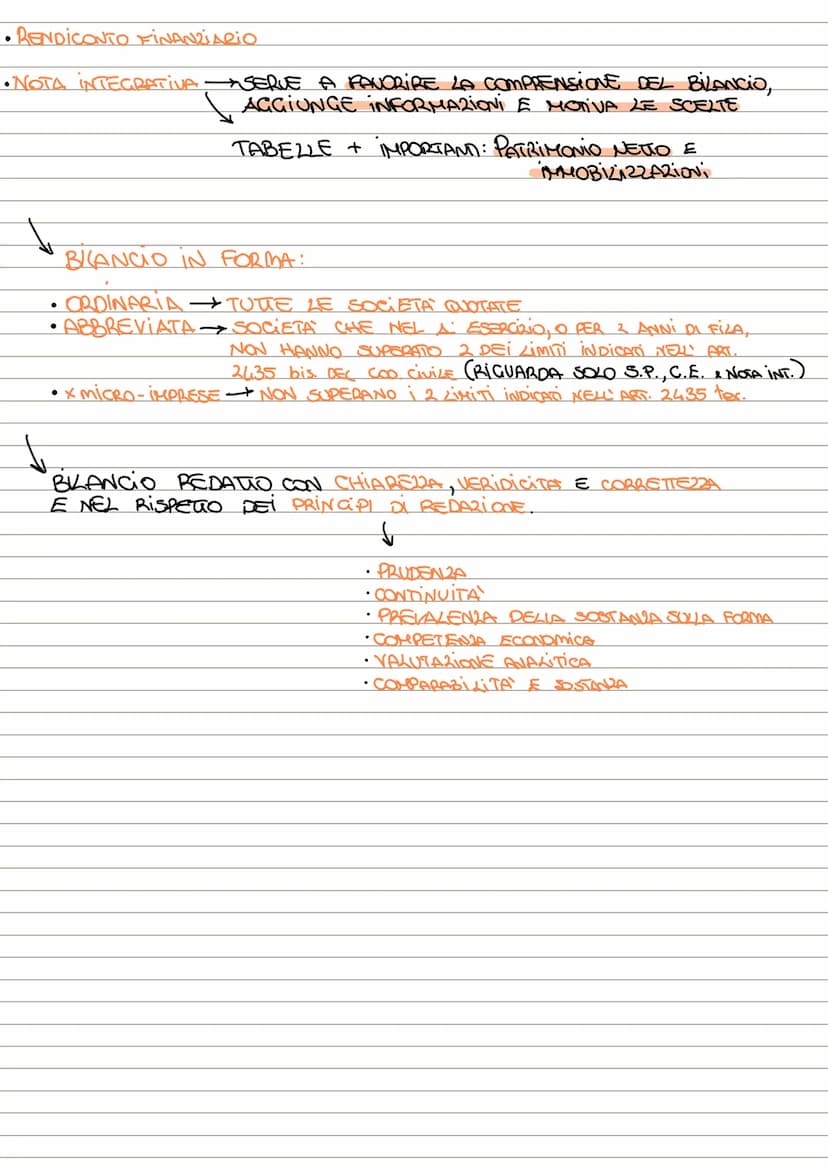 • RENDICONTO FINANZIARIO
• NOTA INTEGRATIVA → SERVE A FAVORIRE LA COMPRENSIONE DEL BILANCIO,
AGGIUNGE INFORMAZIONI E MOTIVA LE SCELTE
TABELLE + IMPORTANTI: PATRIMONIO NETTO E
IMMOBILIZZAZIONI
BILANCIO IN FORMA:
• ORDINARIA → TUTTE LE SOCIETA' QUOTATE
• ABBREVIATA → SOCIETA' CHE NEL 1° ESERCIZIO, O PER 2 ANNI DI FILA,
NON HANNO SUPERATO 2 DEI LIMITI INDICATI NELL' ART.
2435 bis. DEL COD. CIVILE (RIGUARDA SOLO S.P., C.E. & NOTA INT.)
• X MICRO-IMPRESE → NON SUPERANO I 2 LIMITI INDICATI NELL' ART. 2435 ter.
BILANCIO REDATTO CON CHIAREZZA, VERIDICITA' E CORRETTEZZA
E NEL RISPETTO DEI PRINCIPI DI REDAZIONE.
• PRUDENZA
• CONTINUITA'
• PREVALENZA DELLA SOSTANZA SULLA FORMA
• COMPETENZA ECONOMICA
• VALUTAZIONE ANALITICA
• COMPARABILITA' E SOSTANZA